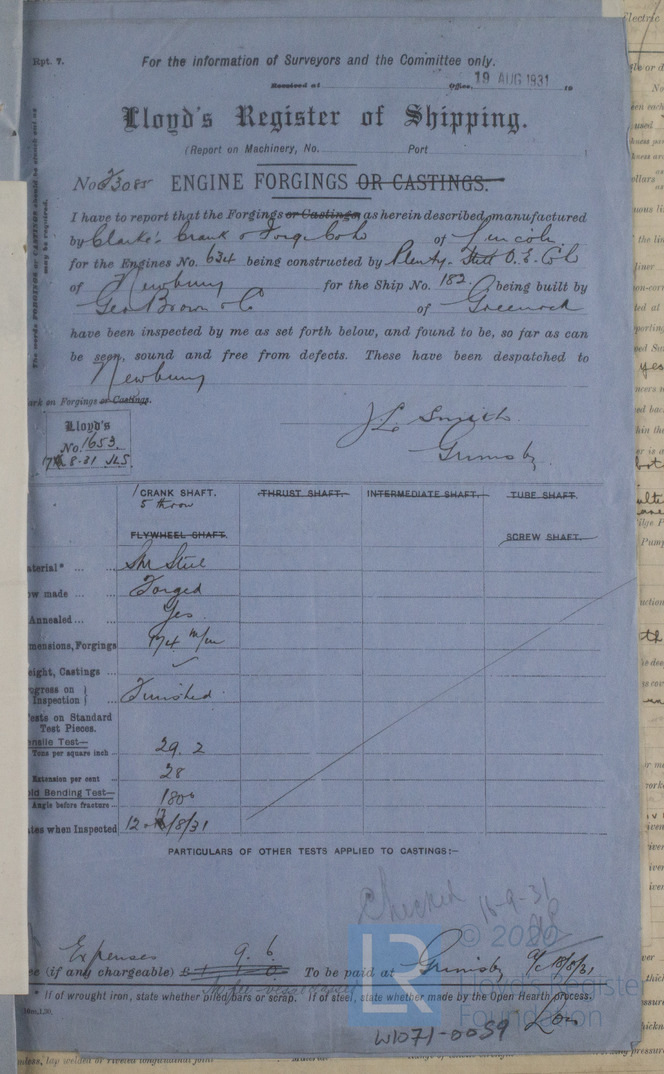 Rpt. 7.
For the information of Surveyors and the Committee only.
Received at Office, 19 AUG 1931 19
Lloyd's Register of Shipping.
(Report on Machinery, No. Port
No. 23085 ENGINE FORGINGS OR CASTINGS.
I have to report that the Forgings or Castings as herein described, manufactured
by Clarke's Crank & Forge Co Ld of Lincoln
for the Engines No. 634 being constructed by Plenty Still O. E. Co
of Newbury for the Ship No. 182 being built by
Geo Brown & Co of Greenock
have been inspected by me as set forth below, and found to be, so far as can
be seen, sound and free from defects. These have been despatched to
Newbury
ark on Forgings or Castings.
Lloyd's
No. 1653.
17 8-31 JLS.
JL Smith
Grimsby
The words FORGINGS or CASTINGS should be struck out as
may be required.
1 CRANK SHAFT. THRUST SHAFT. INTERMEDIATE SHAFT. TUBE SHAFT.
5 throw
FLYWHEEL SHAFT. SCREW SHAFT.
aterial* Steel
ow made Forged
Annealed Yes
mensions, Forgings 174 m/m
eight, Castings ✓
ogress on Inspection Finished.
ests on Standard
Test Pieces.
ensile Test—
Tons per square inch 29.2
Extension per cent 28
ld Bending Test—
Angle before fracture 180°
tes when Inspected 12 17/8/31
PARTICULARS OF OTHER TESTS APPLIED TO CASTINGS:—
Checked 16-9-31
Expenses 9. 6.
ee (if any chargeable) £ To be paid at Grimsby a/c 18/8/31
* If of wrought iron, state whether piled bars or scrap. If of steel, state whether made by the Open Hearth process.
LR © 2020
Lloyd's Register
Foundation
W1071-0059 Lon